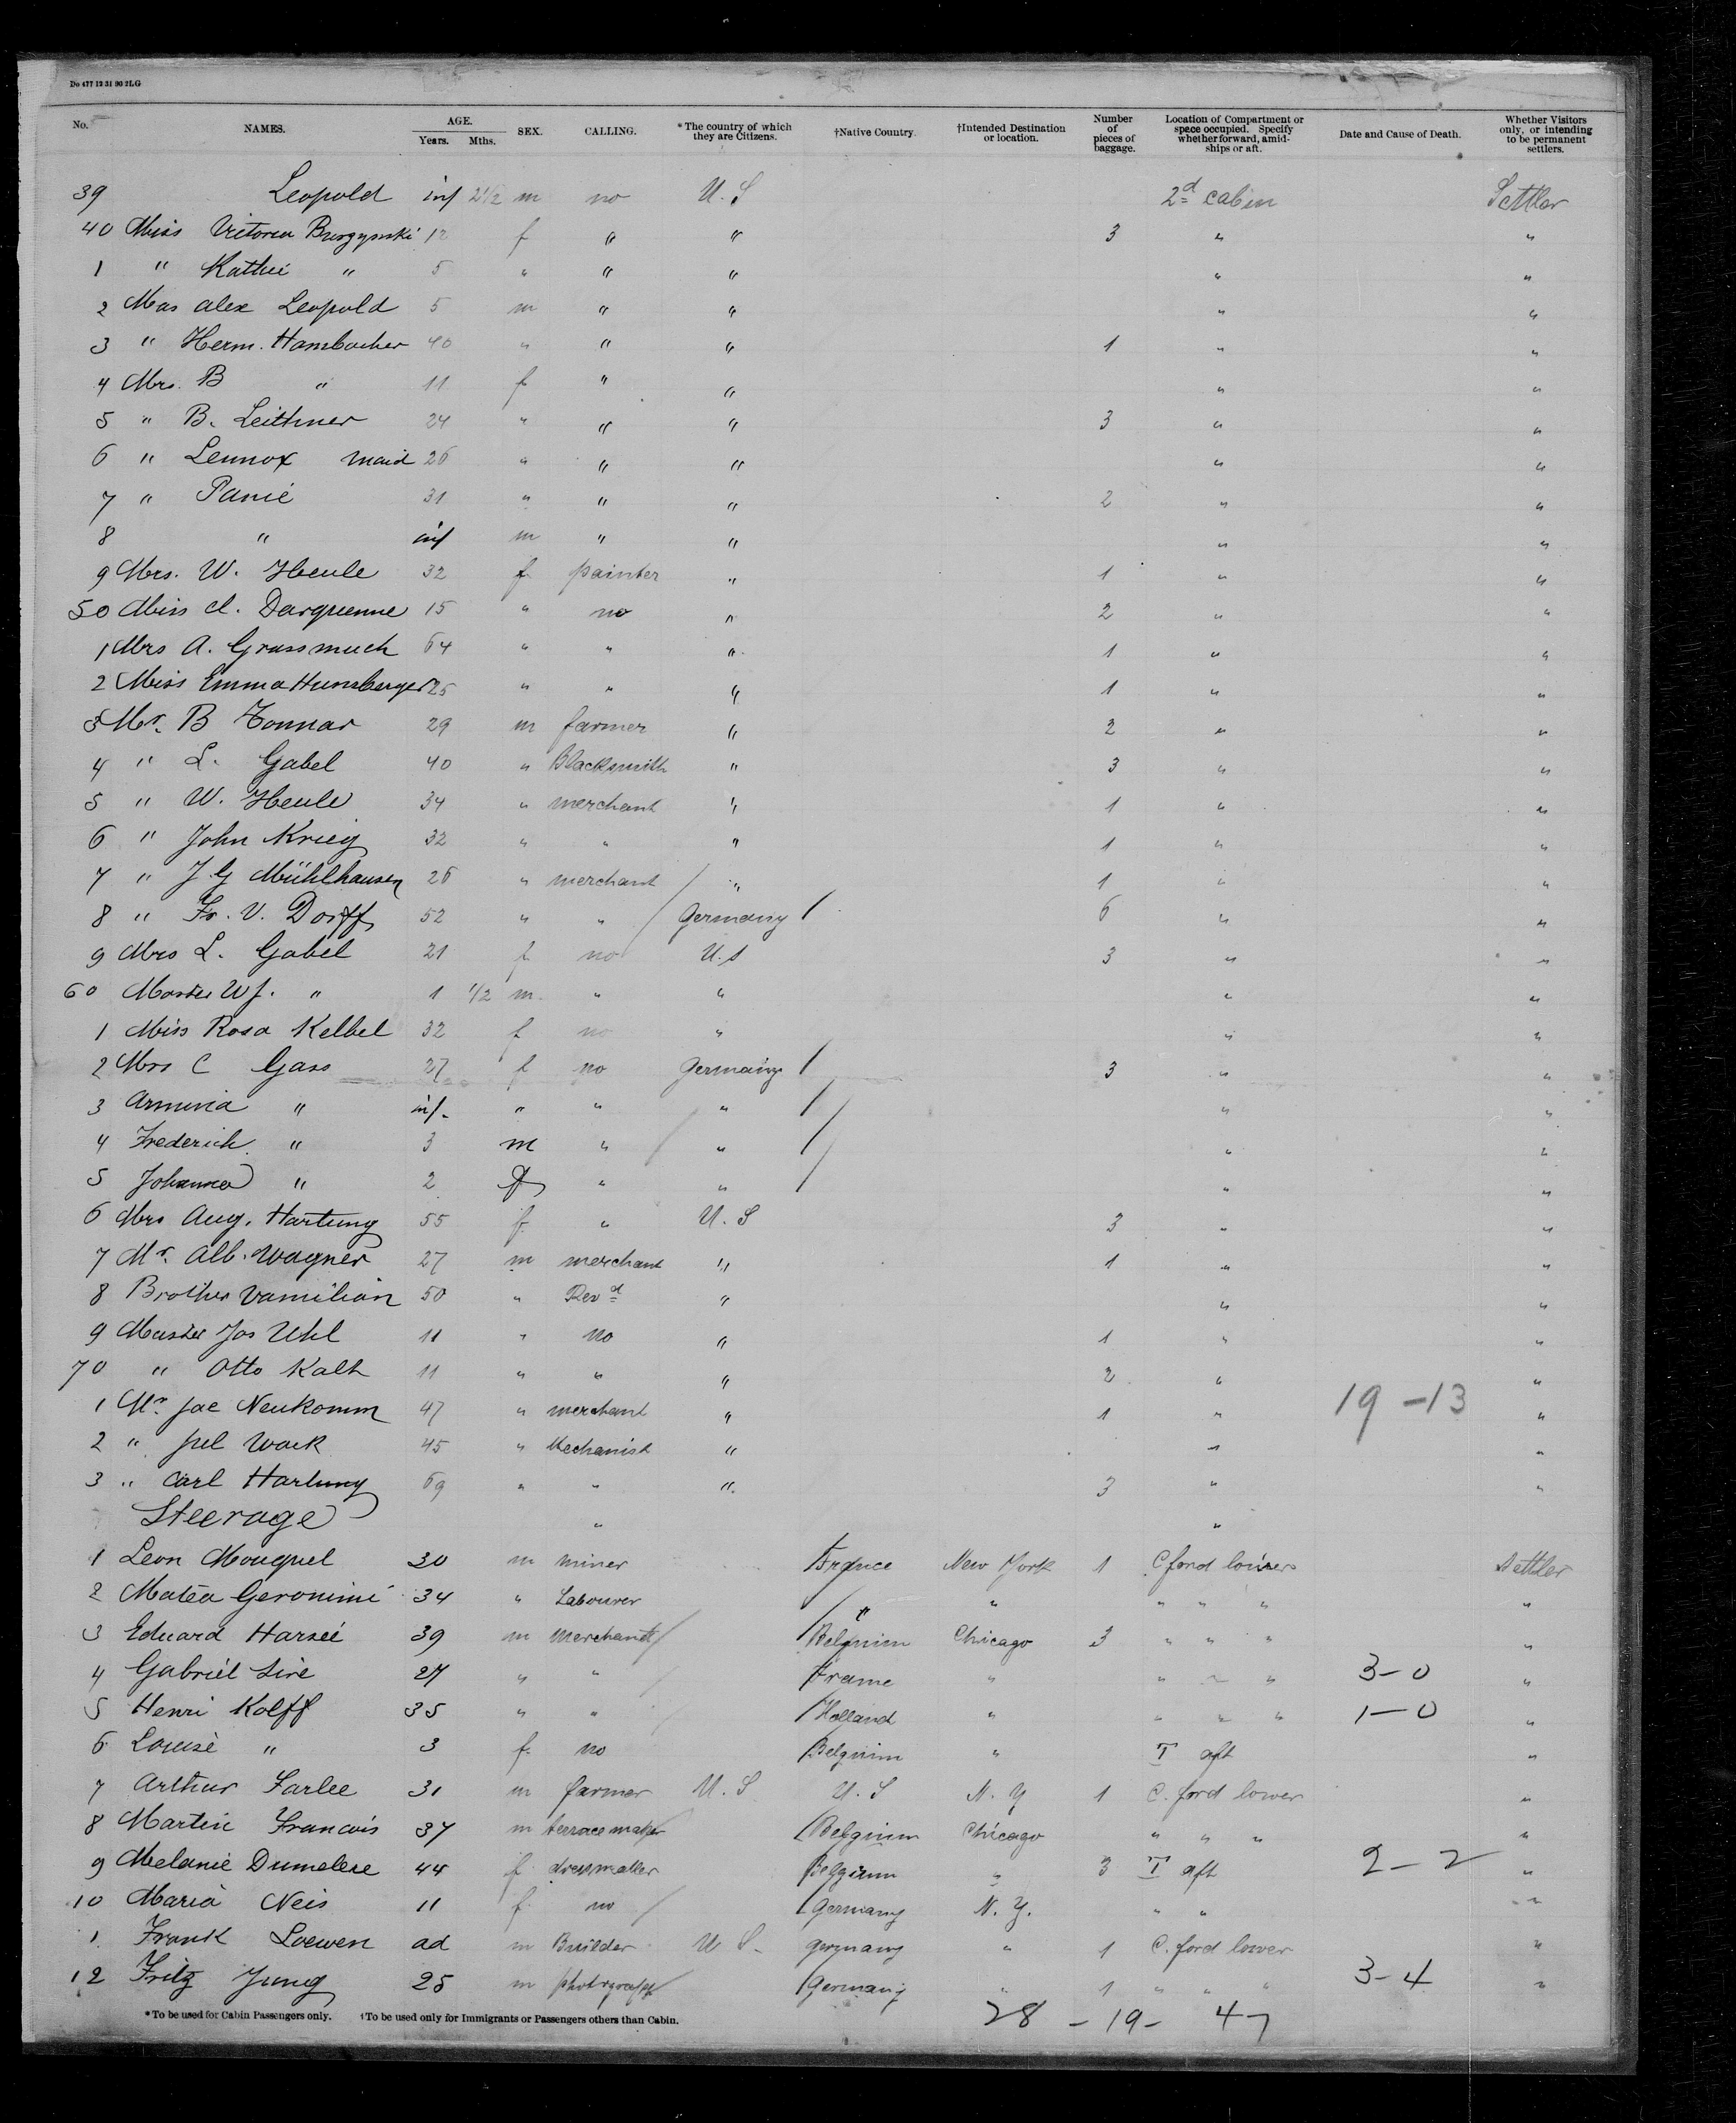 Do 477 12 31 90 2LG
No. NAMES. AGE. Years. Mths. SEX. CALLING. *The country of which they are Citizens. †Native Country. †Intended Destination or location. Number of pieces of baggage. Location of Compartment or space occupied. Specify whether forward, amidships or aft. Date and Cause of Death. Whether Visitors only, or intending to be permanent settlers.
39 Leopold inf 2 1/2 m no U. S 2d cabin Settler
40 Miss Victoria Burzynski 12 f " " 3 " "
1 " Kathie " 5 " " " " "
2 Mas alex Leopold 5 m " " " "
3 " Herm. Hambacher 40 " " " 1 " "
4 Mrs. B " 11 f " " " "
5 " B. Leithner 24 " " " 3 " "
6 " Lennox maid 26 " " " " "
7 " Panie 31 " " " 2 " "
8 " inf m " " " "
9 Mrs. W. Heule 32 f painter " 1 " "
50 Miss Darquenne 15 " no " 2 " "
1 Mrs A. Grassmuch 64 " " " 1 " "
2 Miss Emma Hunsberger 25 " " " 1 " "
3 Mr. B Tonnar 29 m farmer " 2 " "
4 " L. Gabel 40 " Blacksmith " 3 " "
5 " W. Heule 34 " merchant " 1 " "
6 " John Krieg 32 " " " 1 " "
7 " J G Mühlhausen 26 " merchant " 1 " "
8 " Fr. V. Dorff 52 " " Germany 6 " "
9 Mrs L. Gabel 21 f no U. S 3 " "
60 Master Wj. " 1 1/2 m. " " " "
1 Miss Rosa Kelbel 32 f no " " "
2 Mrs C Gass 27 f no Germany 3 " "
3 Armina " inf. " " " " "
4 Frederich " 3 m " " " "
5 Johanna " 2 f " " " "
6 Mrs Aug. Hartung 55 f. " U. S 3 " "
7 Mr. Alb. Wagner 27 m merchant " 1 " "
8 Brother Vamilian 50 " Revd " " "
9 Master Jos Uhl 11 " no " 1 " "
70 " Otto Kalt 11 " " " 2 " "
1 Mr. Jac Neukomm 47 " merchant " 1 " 19 - 13 "
2 " Jul Wack 45 " Mechanist " " "
3 " Carl Hartung 69 " " " 3 " "
Steerage " "
1 Leon Mouquel 30 m miner France New York 1 C ford lower Settler
2 Matéa Geronimi 34 " Labourer " " " " " "
3 Eduard Harzeé 39 m merchant Belgium Chicago 3 " " " "
4 Gabriel Sire 27 " " France " " " " 3-0 "
5 Henri Kolff 35 " " Holland " " " " 1-0 "
6 Louise " 3 f. no Belgium " T aft "
7 Arthur Farlee 31 m farmer U. S. U. S N. Y 1 C. ford lower "
8 Martin Francois 37 m terrace maker Belgium Chicago " " " "
9 Melanie Dumelese 44 f dressmaker Belgium " 3 T aft 2-2 "
10 Maria Neis 11 f. no Germany N. Y. " " "
1 Frank Loewen ad m Builder U S. germany " 1 C. ford lower "
12 Fritz Jung 25 m Germany " 1 " " " 3-4 "
*To be used for Cabin Passengers only. †To be used only for Immigrants or Passengers others than Cabin. 28 - 19 - 47